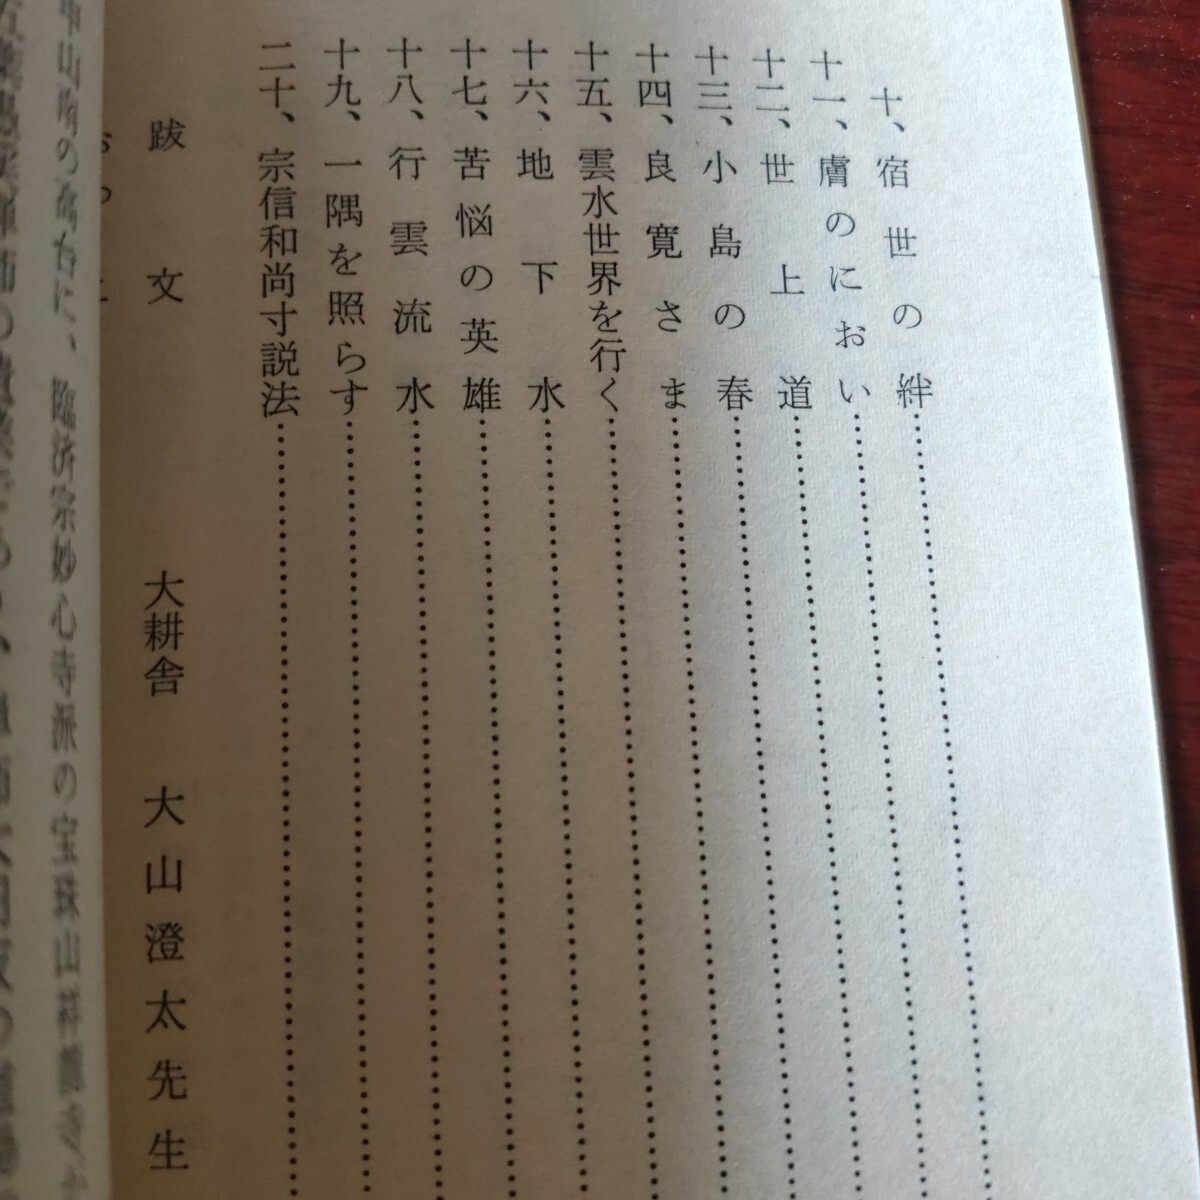 十、宿世の絆
十一、膚のにおい
十二、世上道
十三、小島の春
十四、良寛さま
十五、雲水世界を行く
十六、地下水
十七、苦悩の英雄
十八、行雲流水
十九、一隅を照らす
二十、宗信和尚寸説法
跋文　大耕舎　大山澄太先生
の高台に、臨済宗妙心寺派の宝珠山祥龍寺